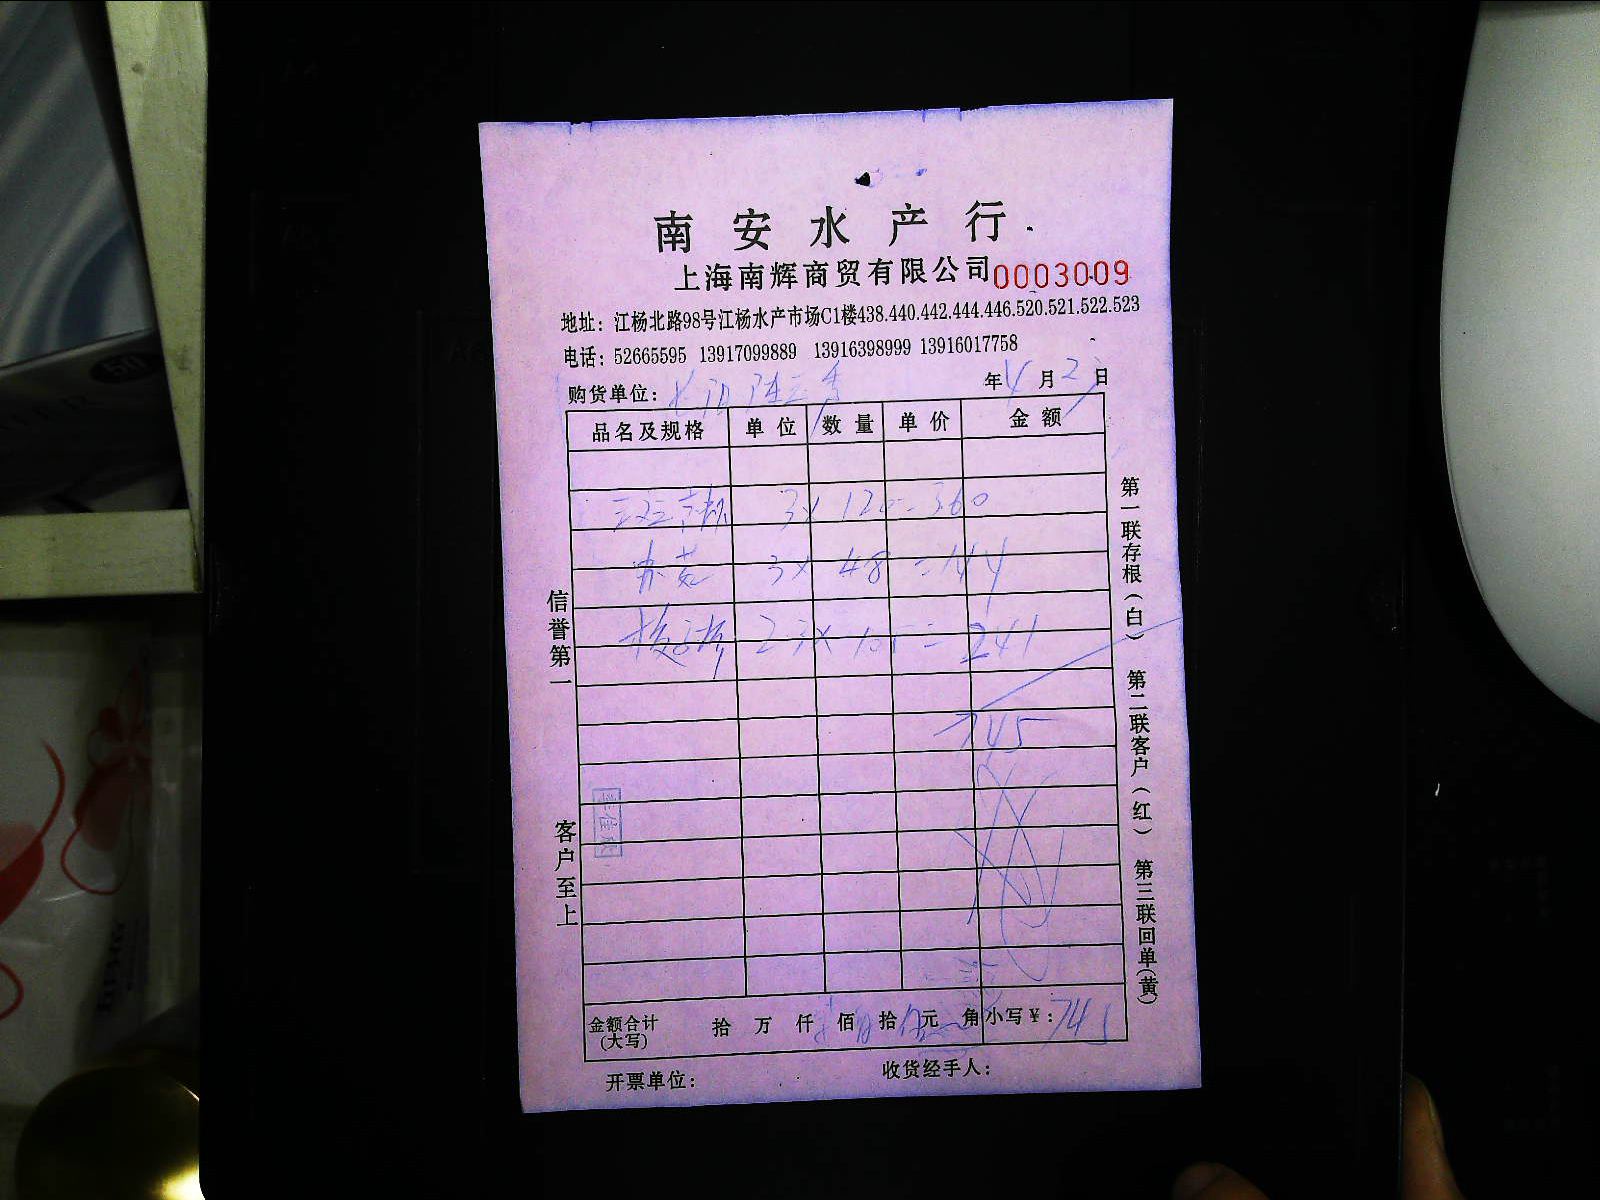 南安水产行
上海南辉商贸有限公司 0003009
地址：江杨北路98号江杨水产市场C1楼438.440.442.444.446.520.521.522.523
电话：52665595 13917099889 13916398999 13916017758
购货单位： 年4月2日
品名及规格 单位 数量 单价 金额
3 x 120 = 360
3 x 48 = 144
2.3 x 105 = 241
745
信誉第一
客户至上
第一联存根（白）
第二联客户（红）
第三联回单（黄）
金额合计(大写) 拾 万 仟 佰 拾 元 角 小写￥：745
开票单位： 收货经手人：